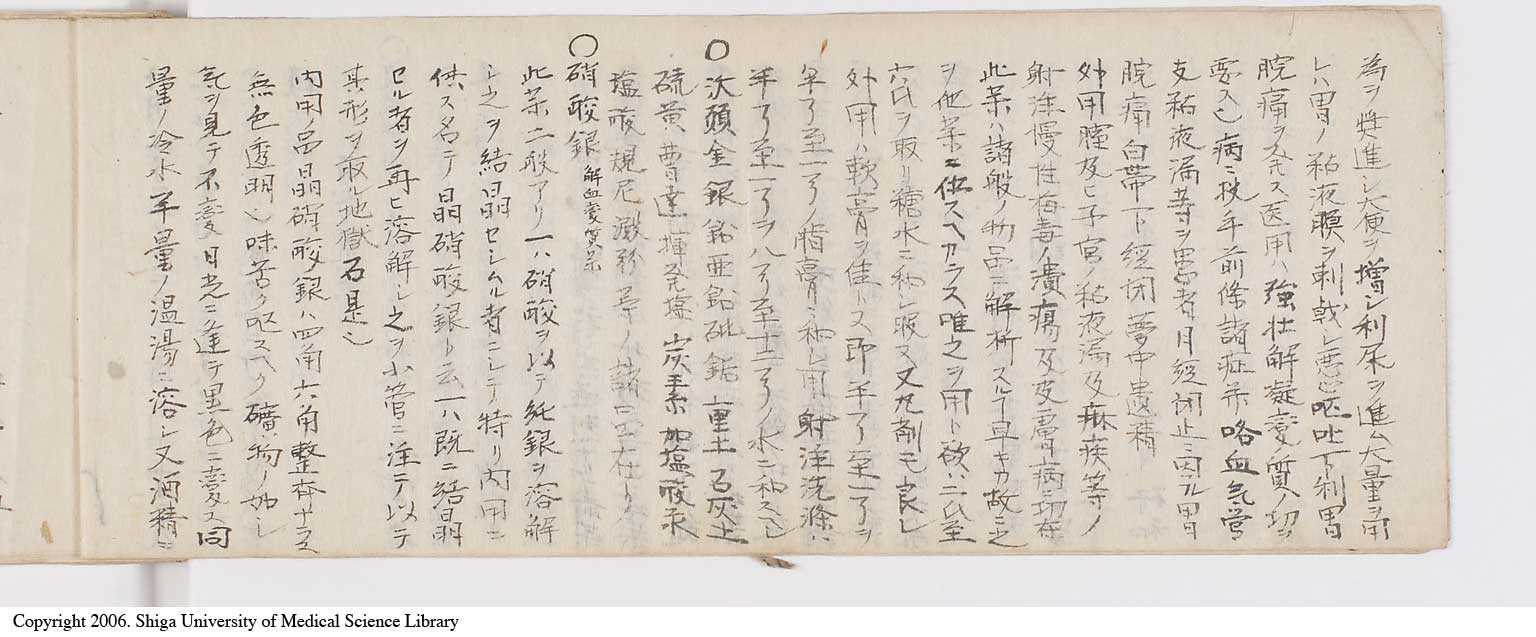 為ヲ催進シ大便ヲ増シ利尿ヲ進ム大量ヲ用
レハ胃ノ粘液膜ヲ刺戟シ悪心嘔吐下利胃
腕痛ヲ発ス医用ハ強壮解凝変質ノ功ヲ
要スル病ニ於テ前條諸症并咯血気管
支粘液漏等ヲ患者月経閉止ニ因ル胃
腕痛白帯下経閉夢中遺精
外用膣及ヒ子宮ノ粘液漏及麻疾等ノ
射注慢性梅毒ノ潰瘍及皮膚病ニ功在
此薬ハ諸般ノ物品ニ解析スル早キカ故ニ之
ヲ他薬ニ伍スヘカラス唯之ヲ用ト欲ハ二氏至
六氏ヲ取リ糖水ニ和シ服又丸剤モ良シ
外用ハ軟膏ヲ佳トス即半了至一了ヲ
半了至一了ノ脂膏ニ和シ用射注洗滌ハ
半了至一了ヲ八了至十二了ノ水ニ和スヘシ
○沃顛金銀鉛亜鉛砒 重土石灰土
硫黄曹達揮発塩炭素加塩酸汞
塩酸規尼澱粉等ノ諸品在リ
○硝酸銀 解血変質薬
此薬二般アリ一ハ硝酸ヲ以テ純銀ヲ溶解
シ之ヲ結晶セシムル者ニシテ特リ内用ニ
供ス名テ晶硝酸銀ト云一ハ既ニ結晶
セル者ヲ再ヒ溶解シ之ヲ小管ニ注テ以テ
其形ヲ取ル地獄石是ﾍ
内用品晶硝酸銀ハ四角六角整斉ナラス
無色透明ﾍ味苦ク嘔スヘク礦物ノ如シ
気ヲ見テ不変日光ニ逢テ黒色ニ変ス同
量ノ冷水半量ノ温湯ニ溶シ又酒精ニ
Copyright 2006. Shiga University of Medical Science Library